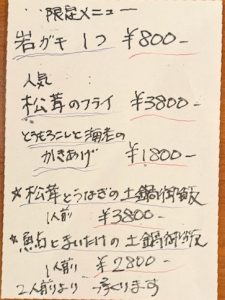 限定メニュー
岩ガキ 1つ ¥800-
人気
松茸のフライ ¥3800-
とうもろこしと海老の
かきあげ ¥1800-
★松茸とうなぎの土鍋御飯
1人前 ¥3800-
★鮎とまいたけの土鍋御飯
1人前 ¥2800-
2人前より 承ります